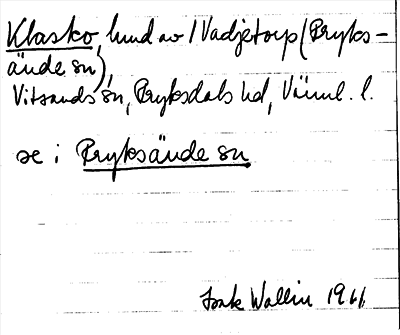 Klasko, hund av 1 Vadjetorp (Fryks-
ände sn),
Vitsands sn, Fryksdals hd, Värml. l.
se i Fryksände sn
Isak Wallin 1911